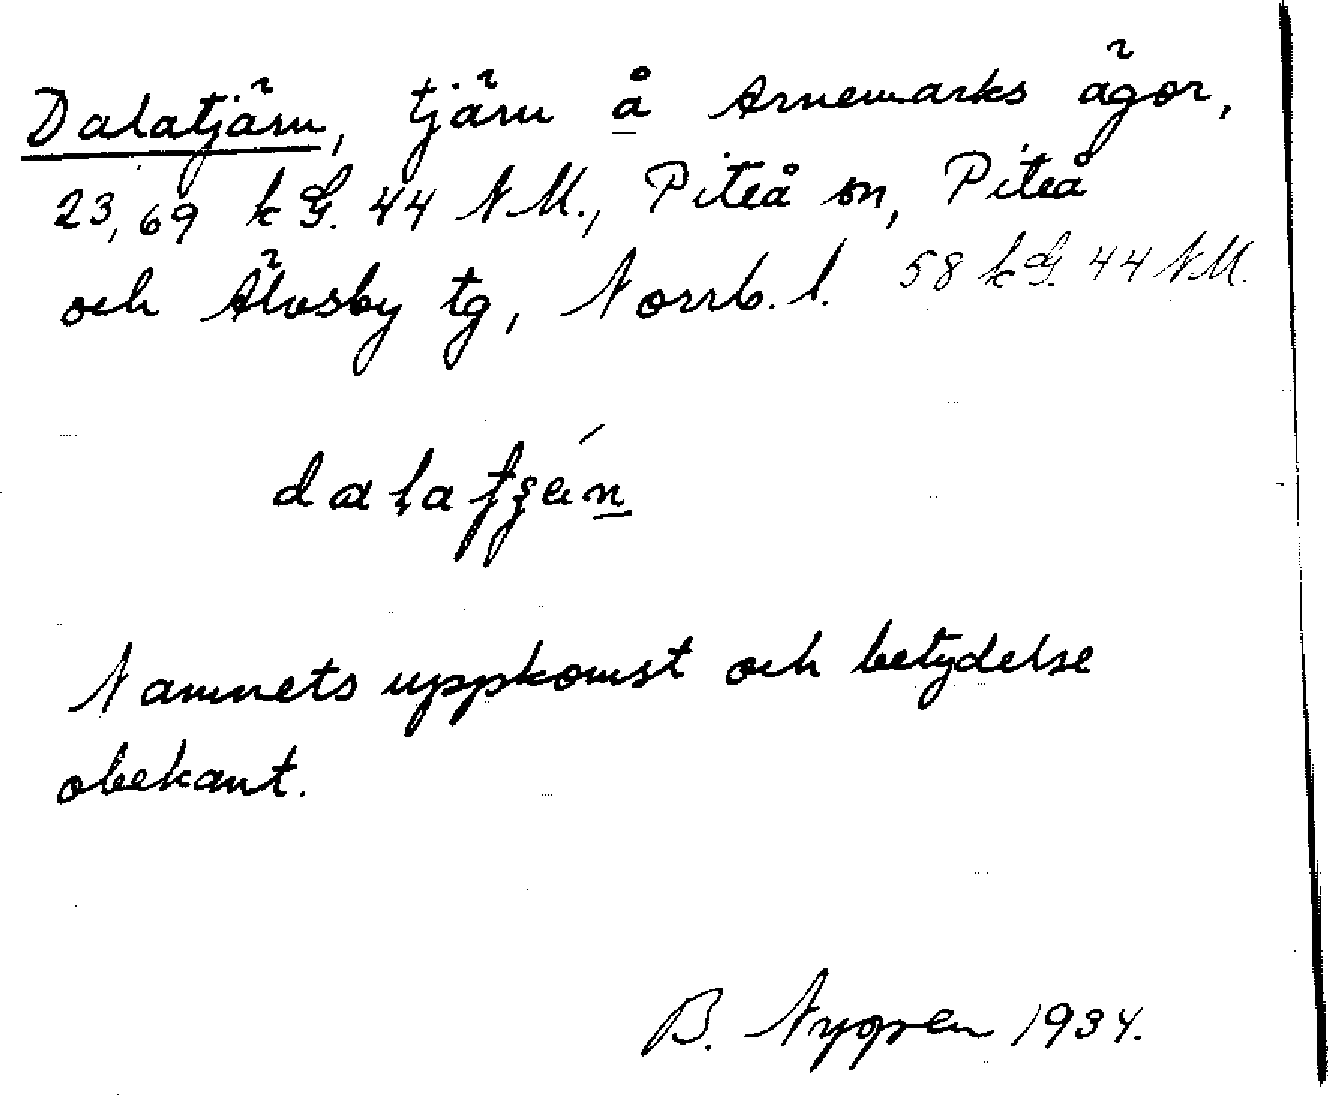 Dalatjärn, tjärn å Arnemarks ägor,
23,69 k G. 44 N M., Piteå sn, Piteå
och Älvsby tg, Norrb. l. 58 k G. 44 N M.
Namnets uppkomst och betydelse
obekant.
B. Nygren 1934.